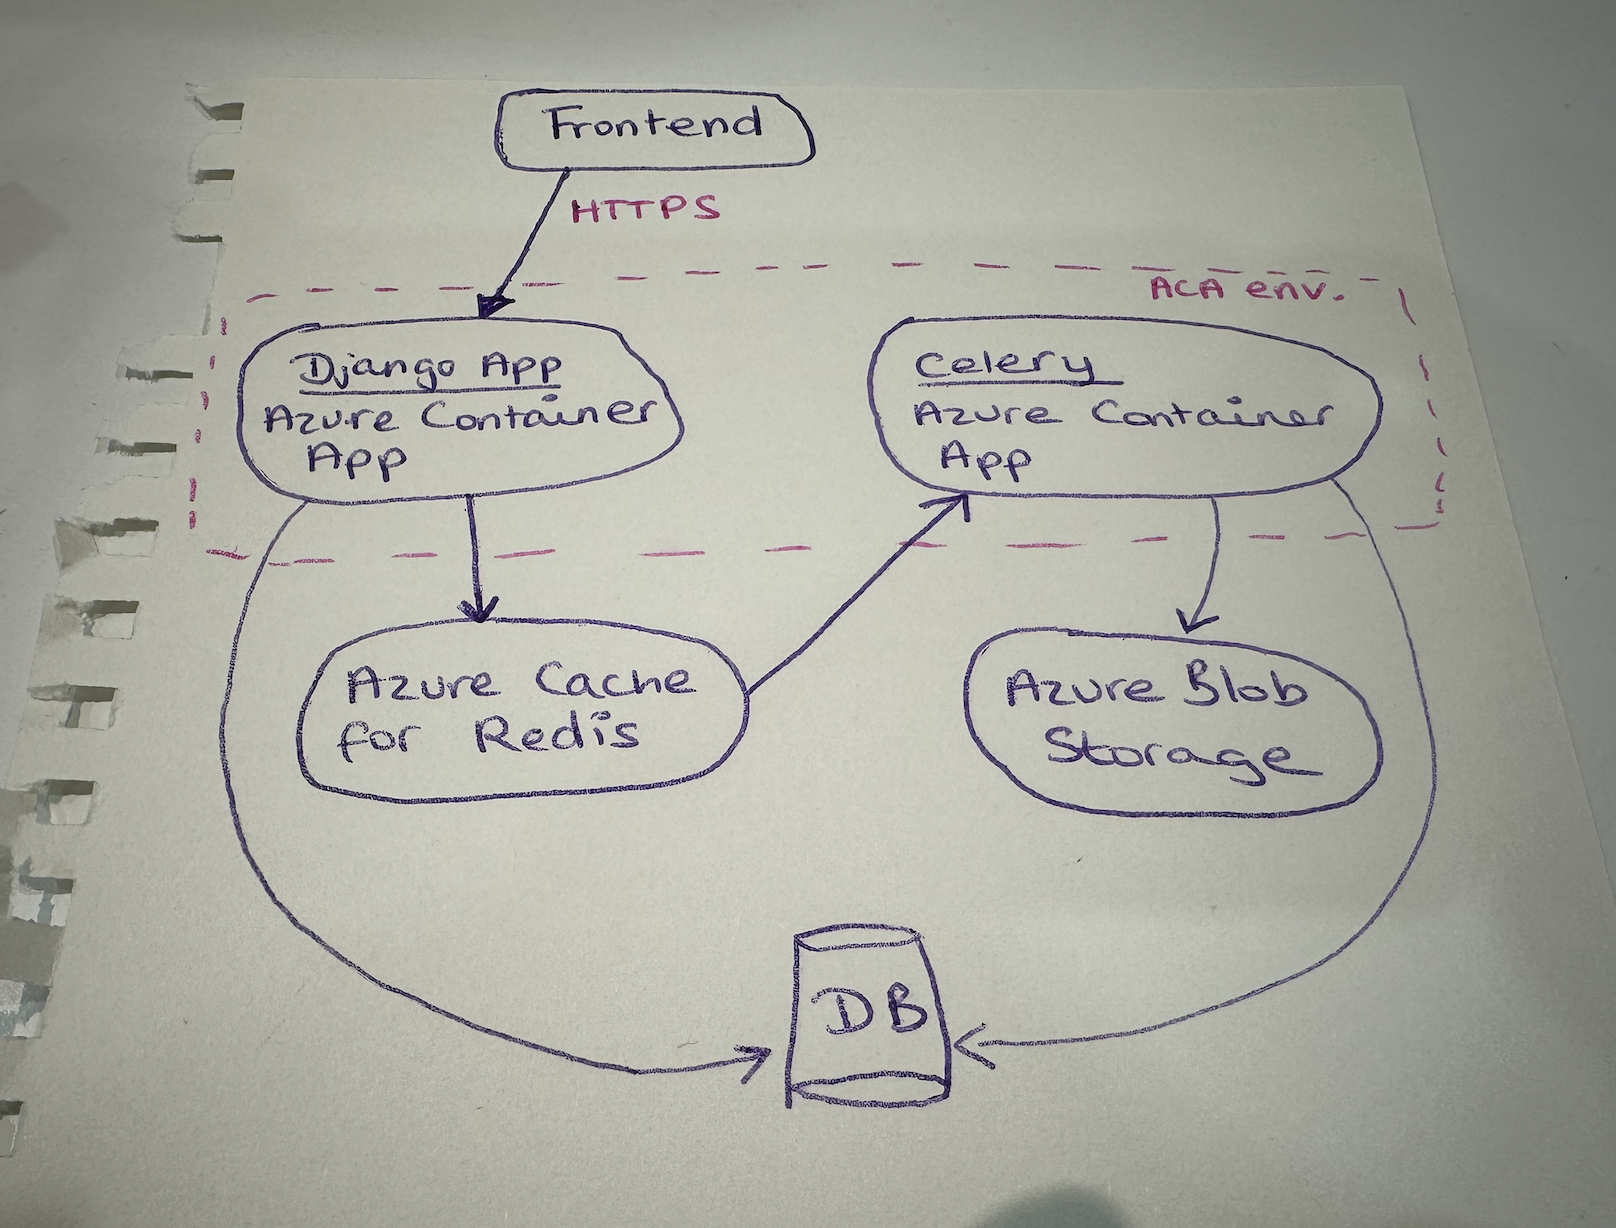 Frontend
HTTPS
ACA env.
Django App
Azure Container
App
Celery
Azure Container
App
Azure Cache
for Redis
Azure Blob
Storage
DB